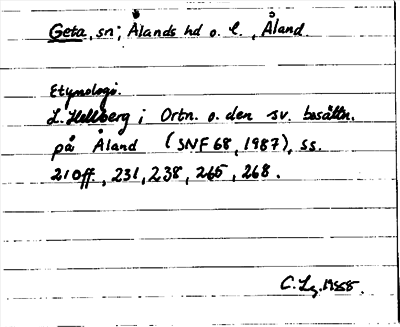 Geta, sn; Ålands hd o. l., Åland.
Etymologi.
L. Hellberg i Ortn. o. den sv. besättn.
på Åland (SNF 68, 1987), ss.
210ff, 231, 238, 265, 268.
C. Lg. 1988.